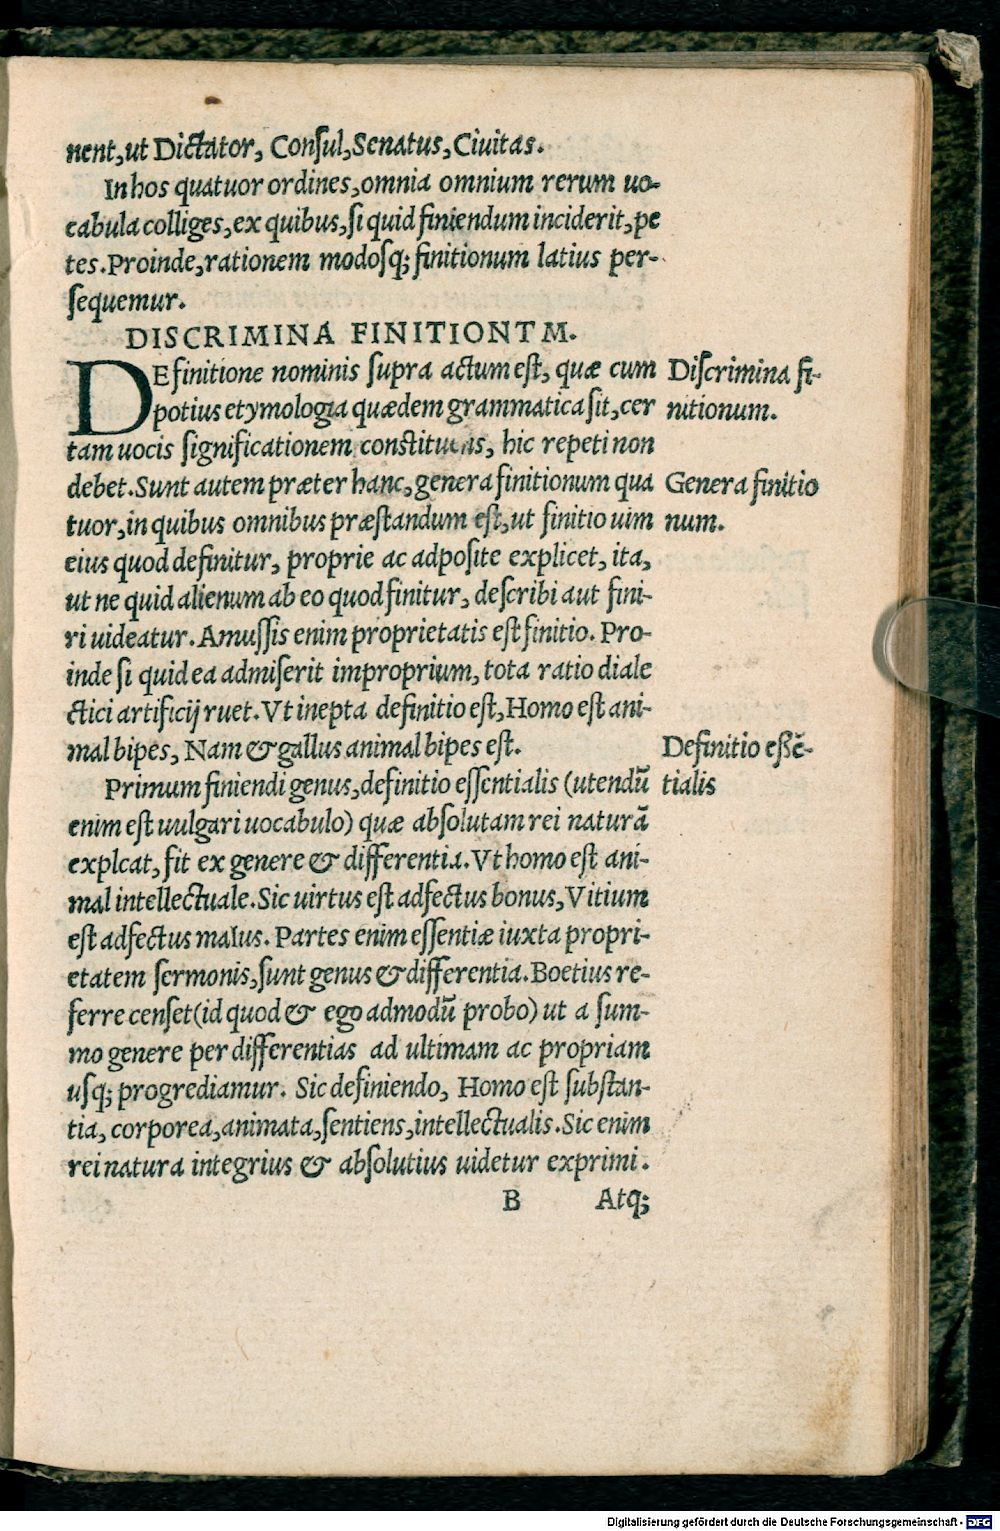 nent, ut Dictator, Consul, Senatus, Ciuitas.
In hos quatuor ordines, omnia omnium rerum uo-
cabula colliges, ex quibus, si quid finiendum inciderit, pe
tes. Proinde, rationem modosq; finitionum latius per-
sequemur.
DISCRIMINA FINITIONTM.
DEfinitione nominis supra actum est, quæ cum
potius etymologia quædem grammatica sit, cer
tam uocis significationem constituens, hic repeti non
debet. Sunt autem præter hanc, genera finitionum qua
tuor, in quibus omnibus præstandum est, ut finitio uim
eius quod definitur, proprie ac adposite explicet, ita,
ut ne quid alienum ab eo quod finitur, describi aut fini-
ri uideatur. Amussis enim proprietatis est finitio. Pro-
inde si quid ea admiserit improprium, tota ratio diale
ctici artificij ruet. Vt inepta definitio est, Homo est ani-
mal bipes, Nam & gallus animal bipes est.
Primum finiendi genus, definitio essentialis (utendū
enim est uulgari uocabulo) quæ absolutam rei naturā
explcat, fit ex genere & differentia. Vt homo est ani-
mal intellectuale. Sic uirtus est adfectus bonus, Vitium
est adfectus malus. Partes enim essentiæ iuxta propri-
etatem sermonis, sunt genus & differentia. Boetius re-
ferre censet (id quod & ego admodū probo) ut a sum-
mo genere per differentias ad ultimam ac propriam
usq; progrediamur. Sic definiendo, Homo est substan-
tia, corporea, animata, sentiens, intellectualis. Sic enim
rei natura integrius & absolutius uidetur exprimi.
B Atq;
Discrimina fi-
nitionum.
Genera finitio
num.
Definitio essē-
tialis
Digitalisierung gefördert durch die Deutsche Forschungsgemeinschaft - DFG